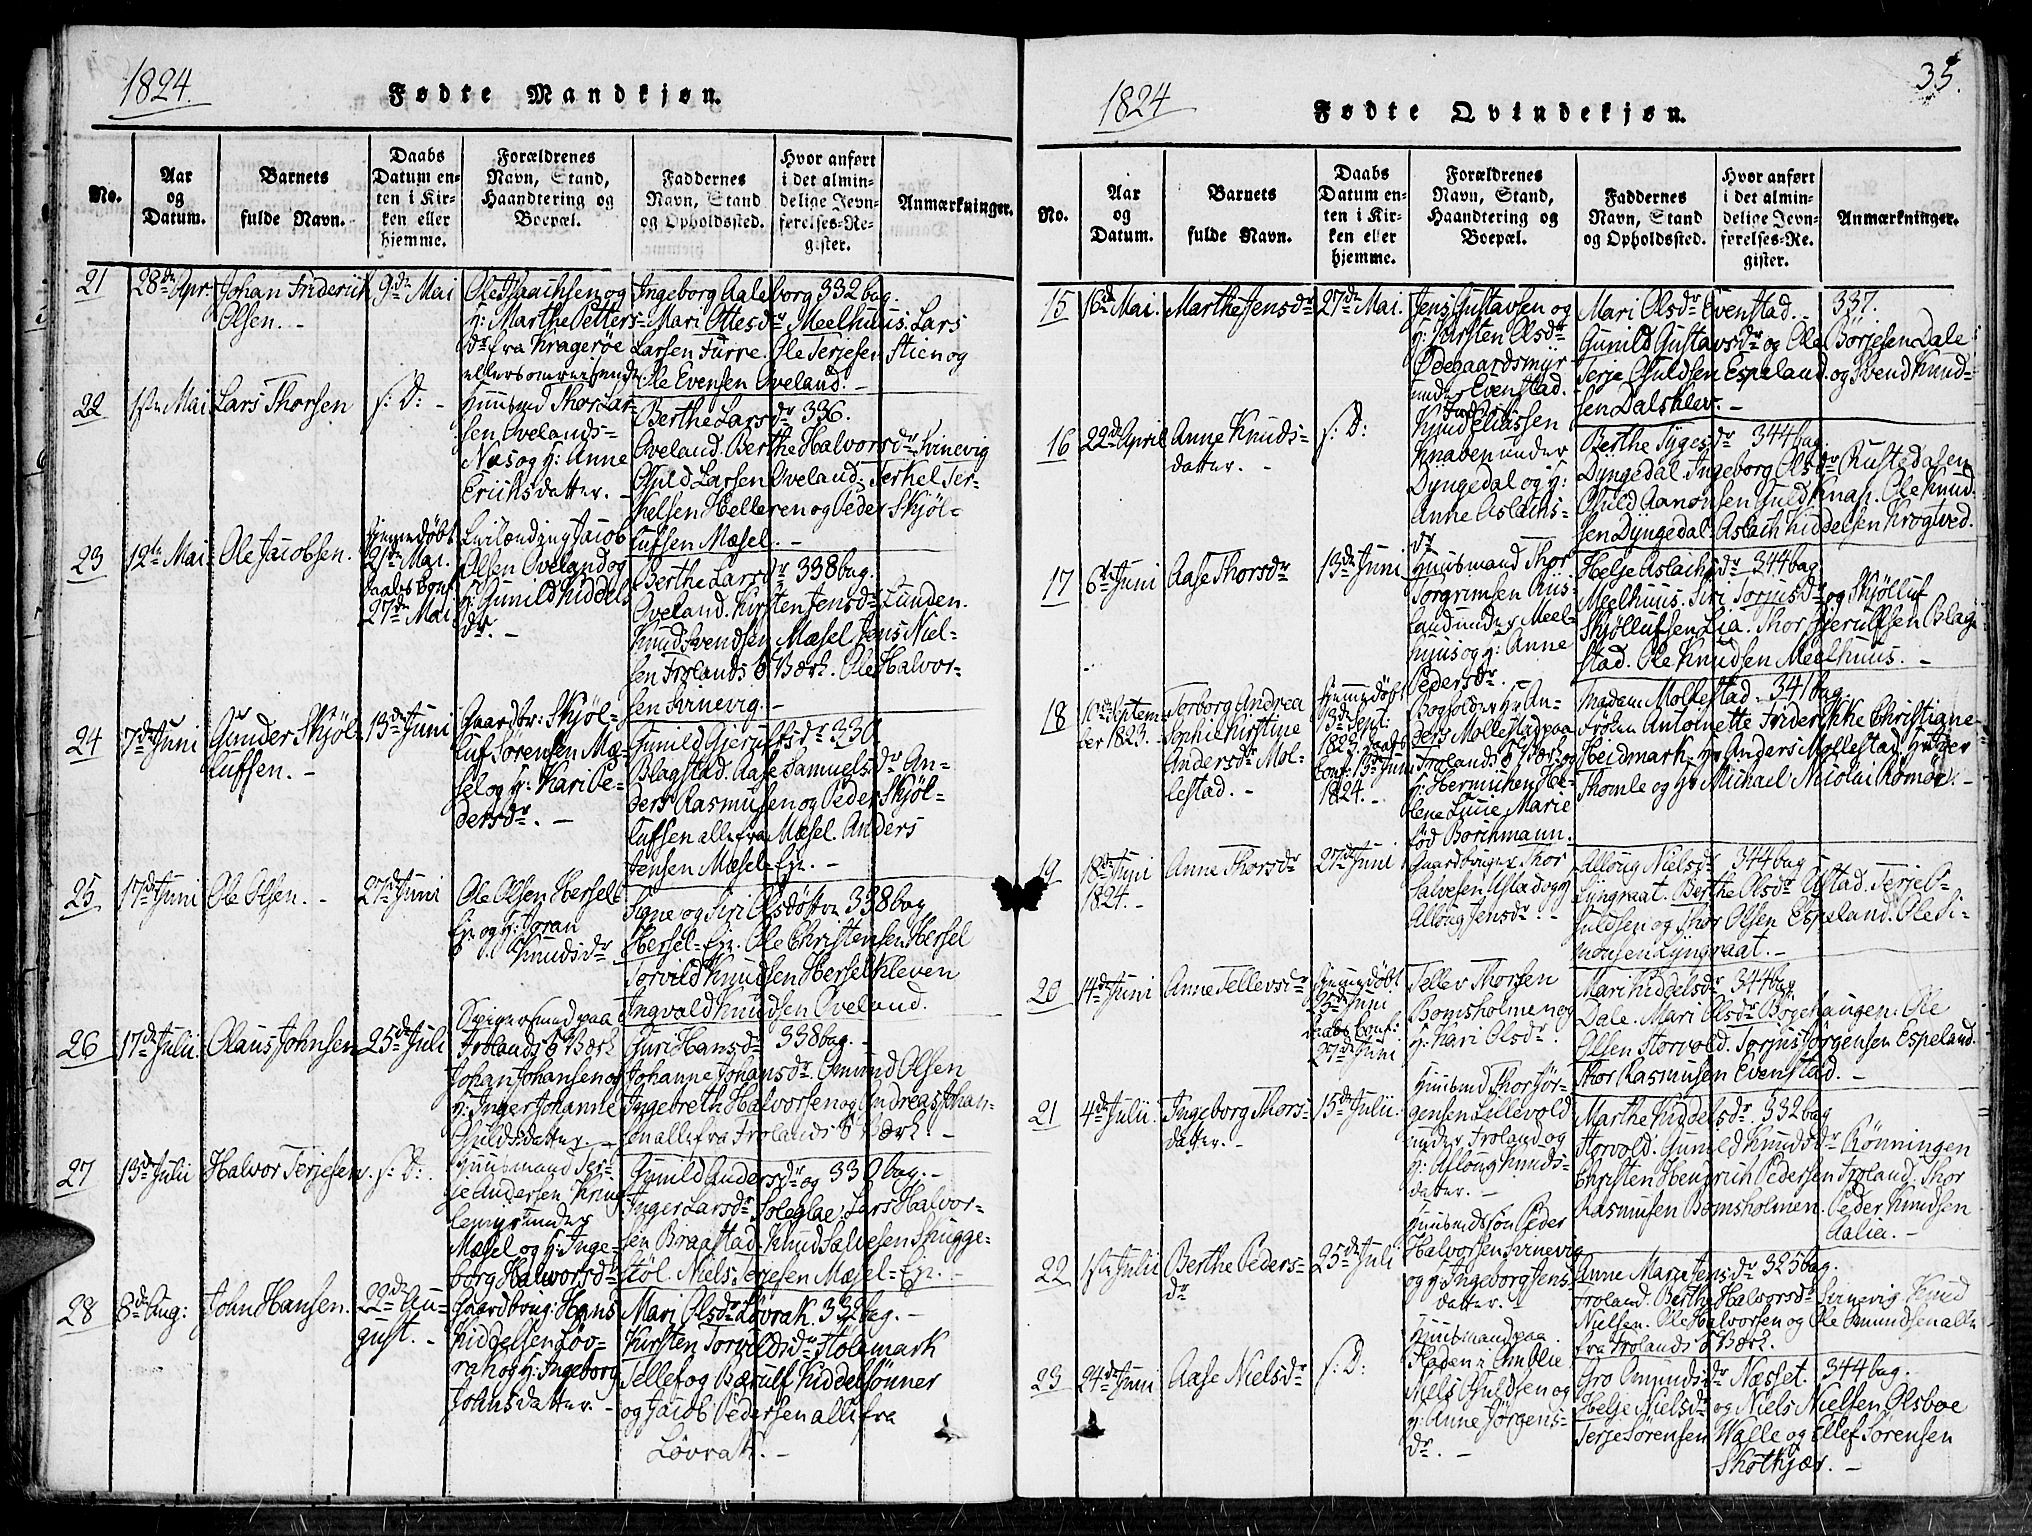 1824.
Fødte Mandkjøn.
No.
Aar og Datum.
Barnets fulde Navn.
Daabs Datum enten i Kirken eller hjemme.
Forældrenes Navn, Stand, Haandtering og Boepæl.
Faddernes Navn, Stand og Opholdssted.
Hvor anført i det almindelige Jevnførelses-Register.
Anmærkninger.
21
28de Apr.
Johan Friderich
Olsen. -
9de Mai
Ole Isaachsen og
H: Marthe Petters-
dr fra Kragerøe
ellers omreisende.
Ingeborg Aaleborg 332 bag.
Mari Ottesdr Meelhuus. Lars
Larsen Furre. Ole Terjesen Stien og
Ole Evensen Oveland. -
22
1ste Mai
Lars Thorsen
s: D: -
Huusmd Thor Lar-
sen Ovelands-
Næs og H: Anne
Erichsdatter. -
Berthe Larsdr 336.
Oveland. Berthe Halvorsdr Svinevig
Ohuld Larsen Oveland. Terkel Ter-
kelsen Helleren og Peder Skjøl-
lufsen Mæsel. -
23
12te Mai
Ole Jacobsen.
Hjemmedøbt
21de Mai.
Daabs Conf.
27de Mai.
Olsen Oveland og
H: Gunild Kiddels
dr. -
Berthe Larsdr 338 bag.
Oveland. Kirsten Jensdr Lunden.
Knud Svendsen Mæsel. Jens Niel-
sen Frolands Værk. Ole Halvor-
sen Svinevig. -
24
7de Juni
Gunder Skjøl-
lufsen. -
13de Juni
Gaardbr: Skjøl-
luf Sørensen Mæ-
sel og H: Kari Pe-
dersdr. -
Gunild Gjerulfsdr 330.
Blagstad. Aase Samuelsdr An-
ders Rasmusen og Peder Skjøl-
lufsen alle fra Mæsel. Anders
Jensen Mæsel-Ejr. -
25
17de Juni
Ole Olsen. -
27de Juni
Ole Olsen Hersel
Ejr. og H: Joran
Knudsdr
Signe og Siri Olsdøttre 338 bag
Hersel-Ejr. Ole Christensen Hersel
Torvild Knudsen Herselkleven
Ingvald Knudsen Oveland.
26
17de Julii
Olaus Johnsen
25de Juli
Spigersmed paa
Frolands Værk
Johan Johansen og
H: Inger Johanne
Ohuldsdatter. -
Guri Hansdr 338 bag. -
Johanne Johansdr. Omund Olsen
Ingebreth Halvorsen og Andreas Johan-
sen alle fra Frolands Værk. -
27
13de Julii
Halvor Terjesen.
s: D:
Huusmand Ter-
je Andersen Kring-
lemyr under
Mæsel og H: Inge-
borg Halvorsdr
Gunild Andersdr og 332 bag. -
Inger Larsdr Soleglae: Lars Halvor-
sen Braastad. Knud Salvesen Skugge-
støl. Niels Terjesen Mæsel-Ejr. -
28
8de Aug:
John Hansen.
22de Au-
gust. -
Gaardbrug: Hans
Kiddelsen Løv-
rak og H: Ingeborg
Johnsdatter. -
Mari Olsdr Løvrak. 332 bag. -
Kirsten Torvildsdr Holemark
Tellef og Bærulf Kiddelsønner
og Jacob Pedersen alle fra
Løvrak. -
1824
Fødte Qvindekjøn.
35.
No.
Aar og Datum.
Barnets fulde Navn.
Daabs Datum enten i Kirken eller hjemme.
Forældrenes Navn, Stand, Haandtering og Boepæl.
Faddernes Navn, Stand og Opholdssted.
Hvor anført i det almindelige Jevnførelses-Register.
Anmærkninger.
15
16de Mai.
Marthe Jensdr
27de Mai.
Jens Gustavsen og
H: Karsten Olsdr
Ødegaardsmyr
under Evenstad.
Mari Olsdr Evenstad. - 337.
Gunild Gustavsdr og Ole Børjesen Dale
Terje Ohuldsen Espeland. og Svend Knud-
sen Dalsklev. -
16
22de April
Anne Knuds-
datter. -
s: D:
Knud Eliassen
Knaben under
Dyngedal og H:
Anne Aslachs-
dr
Berthe Sygesdr 344 bag.
Dyngedal Ingeborg Olsdr Rustedalen
Ohuld Aanonsen Guldknap. Ole Knud-
sen Dyngedal. Aslach Kiddelsen Krogtved.
17
6te Juni
Aase Thorsdr
13de Juni
Huusmand Thor
Torgrimsen Huus-
land under Meel-
huus og H: Anne
Pedersdr. -
Helje Aslachsdr 344 bag
Meelhuus. Siri Torjusdr og Skjølluf
Skjøllufsen Lia. Thor Gjerulfsen Blag-
stad. Ole Knudsen Meelhuus. -
18
10de Septem
ber 1823. -
Torborg Andrea
Sophie Kirstine
Andersdr Mol-
lestad. -
Hjemmedøbt
13de Sept.
1823. Daabs
Conf. 13de Juni
1824. -
Bogholder Hr An-
ders Mollestad paa
Frolands Værk og
H: Hermichen He-
lene Lucie Marie
fød Borchmann.
Madam Mollestad. 341 bag.
Frøken Antoinette Friderikke Christiane
Heidmark. Hr Anders Mollestad. Hr Peer
Thomle og Hr Michael Nicolai Rømer. -
19
18de Juni
1824. -
Anne Thorsdr
27de Juni
Gaardbruger Thor
Salvesen Ustad og H:
Alloug Jensdr. -
Alloug Nielsdr 344 bag
Lyngraat. Berthe Olsdr Ustad. Terje O-
huldsen og Thor Olsen Espeland. Ole Si-
monsen Lyngraat. -
20
14de Juni
Anne Tellevsdr
Hjemmedøbt
25de Juni
Daabs Conf:
27de Juni
Tellev Thorsen
Bomsholmen og
H: Kari Olsdr.
Mari Kiddelsdr 344 bag.
Dale. Mari Olsdr Bogehaugen. Ole
Olsen Storvold. Torjus Jørgensen Espeland.
Thor Rasmusen Evenstad. -
21
4de Julii.
Ingeborg Thors-
datter. -
15de Julii.
Huusmd Thor Jør-
gensen Lillevold
under Froland og
H: Alloug Knuds-
datter. -
Marthe Kiddelsdr. 332 bag
Storvold. Gunild Knudsdr Rønningen
Christen Hendrich Pedersen Froland. Thor
Rasmusen Bomsholmen. Peder Knudsen
Aalia. -
22
1ste Julii
Berthe Peders-
dr
25de Juli
Huusmdssøn Peder
Halvorsen Svinevig
og H: Ingeborg Jens-
datter. -
Anne Marie Jensdr 325 bag.
Froland. Berthe Halvorsdr Svinevig. Knud
Nielsen. Ole Halvorsen og Ole Omundsen alle
fra Frolands Værk.
23
24de Juni
Aase Nielsdr
s: D:
Huusmand paa
Niels Ohuldsen og
H: Anne Jørgens-
dr. -
Gro Omundsdr Næsset. 344 bag.
Helje Nielsdr og Niels Nielsen Olsboe
Terje Sørensen Walle og Ellef Sørensen
Skotkjær. -